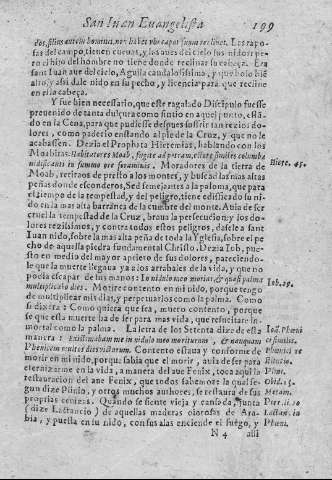 San Iuan Euangelista 199
dos, filius autem hominis, non habet vbi caput suum reclinet. Las rapo-
sas del campo, tienen cueuas, y los aues del cielo sus nidos: pe-
ro el hijo del hombre no tiene donde reclinar la cabeça. Era
sant Iuan aue del cielo, Aguila caudalosissima, y que bolo biē
alto, y assi dale nido en su pecho, y licencia para que recline
en el la cabeça.
Y fue bien necessario, que este regalado Discipulo fuesse
preuenido de tanta dulçura como sintio en aquel punto, estā-
do en la Cena, para que pudiesse despues sufrir tan rezios do-
lores, como padecio estando al pie de la Cruz, y que no le
acabassen. Dezia el Propheta Hieremias, hablando con los
Moabitas: Habitatores Moab, fugite ad petram, estote similes columbæ
nidificanti in summo ore foraminis. Moradores de la tierra de Hiere. 45.
Moab, retiraos de presto a los montes, y buscad las mas altas
peñas donde esconderos, Sed semejantes a la paloma, que para
el tiempo de la tempestad, y del peligro, tiene edificado su ni-
do en la mas alta barranca de la cumbre del monte. Auia de ser
cruel la tempestad de la Cruz, braua la persecucion: y los do-
lores rezissimos, y contra todos estos peligros, dafele a sant
Iuan nido, sobre la mas alta peña de toda la Yglesia, sobre el pe
cho de aquella piedra fundamental Christo. Dezia Iob, pue-
sto en medio del mayor aprieto de sus dolores, pareciendo-
le que la muerte llegaua ya a los arrabales de la vida, y que no
podia escapar de sus manos: In nidulo meo moriar, & quasi palma
multiplicabo dies. Morire contento en mi nido, porque tengo Iob. 29.
de multiplicar mis dias, y perpetuarlos como la palma. Como
si dixera: Como quiera que sea, muero contento, porque
se que esta muerte ha de ser para mas vida, que resuscitare in-
mortal como la palma. La letra de los Setenta dize de esta
manera: Existimabam me in nidulo meo moriturum, & nunquam
Phœnicem multis dies victurum. Contento estaua y conforme de
morir en mi nido, porque sabia que el morir, auia de ser para
eternizarme en la vida, a manera del aue Fenix, toca aqui la
restauracion del aue Fenix, que todos sabemos la qual se-
gun dize Plinio, y otros muchos authores, se restaura de sus
proprias cenizas. Quando se siente vieja y cansada, junta
(dize Lactancio) de aquellas maderas olorosas de Ara-
bia, y puesta en su nido, con sus alas enciende el fuego, y
N 4 assi